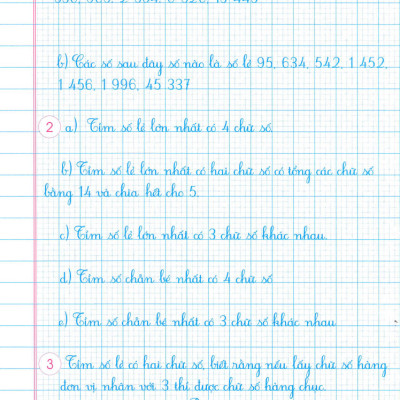 b) Các số sau đây số nào là số lẻ 95, 634, 542, 1 452,
1 456, 1 996, 45 337
2 a) Tìm số lẻ lớn nhất có 4 chữ số.
b) Tìm số lẻ lớn nhất có hai chữ số có tổng các chữ số
bằng 14 và chia hết cho 5.
c) Tìm số lẻ lớn nhất có 3 chữ số khác nhau.
d) Tìm số chẵn bé nhất có 4 chữ số
e) Tìm số chẵn bé nhất có 3 chữ số khác nhau
3 Tìm số lẻ có hai chữ số, biết rằng nếu lấy chữ số hàng
đơn vị nhân với 3 thì được chữ số hàng chục.